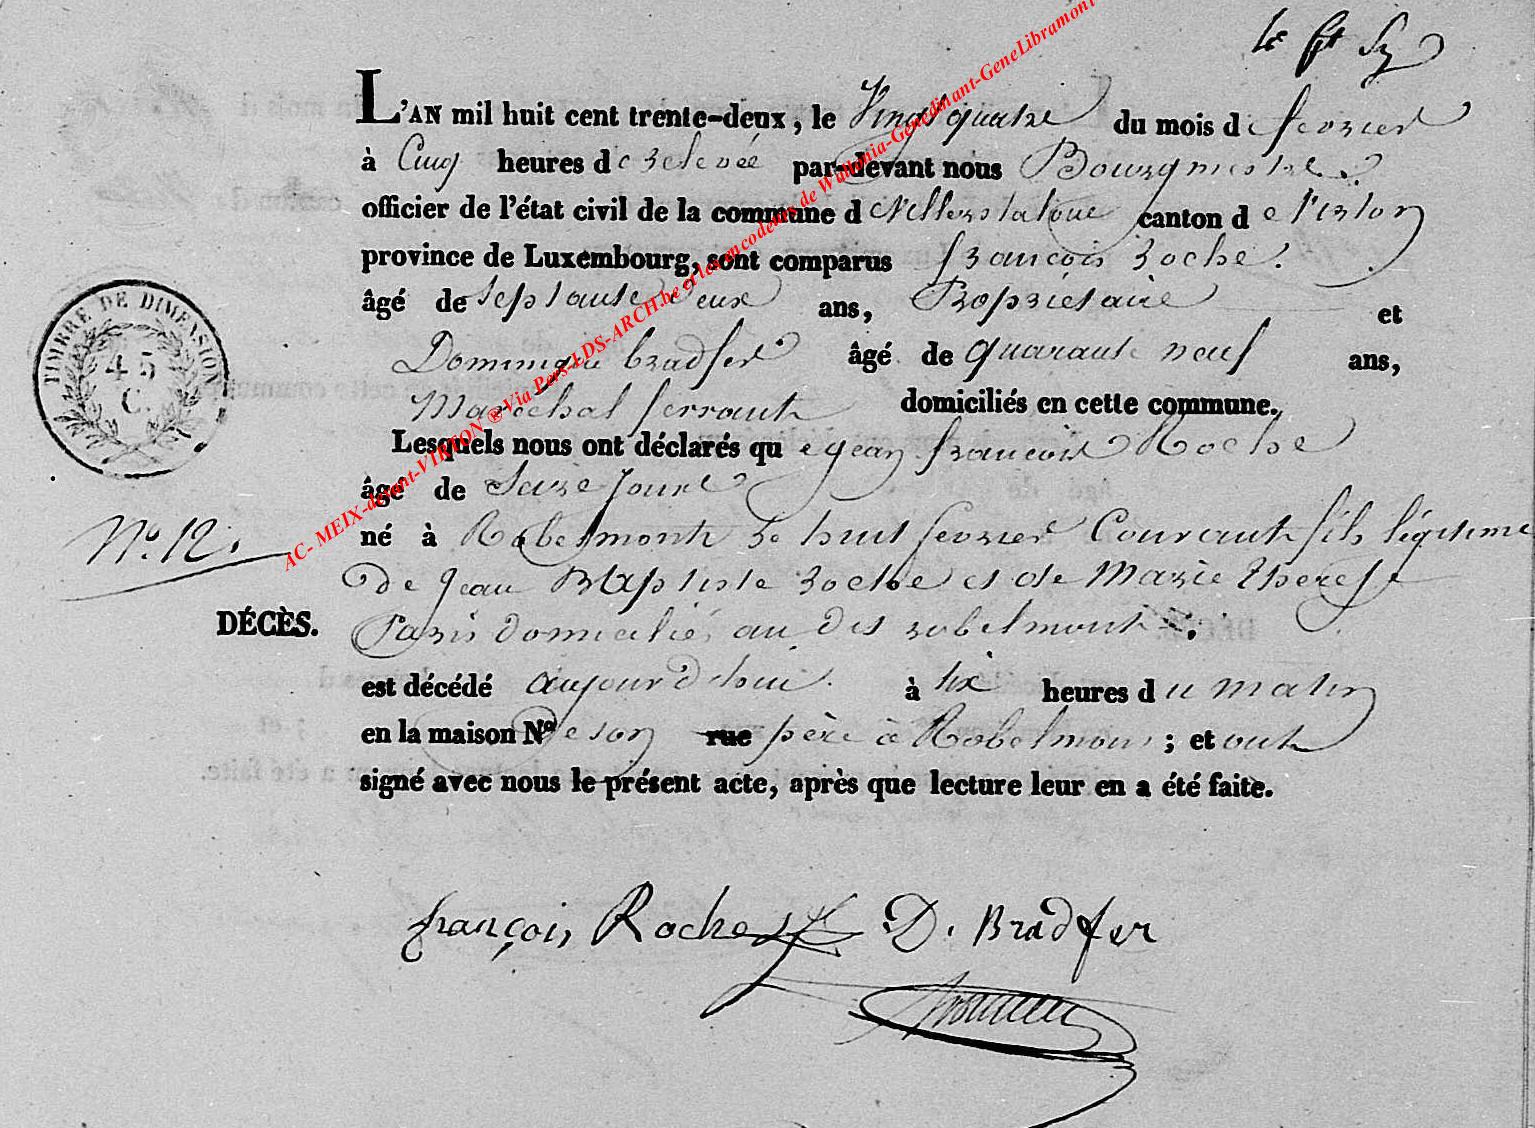 L'AN mil huit cent trente-deux, le Vingt quatre du mois de fevrier
à Cinq heures de relevée par-devant nous Bourgmestre
officier de l'état civil de la commune de Villerslaloue canton de Virton
province de Luxembourg, sont comparus françois roche.
âgé de septante deux ans, Propriétaire et
Dominique bradfer âgé de quarante neuf ans,
Maréchal ferrant domiciliés en cette commune.
Lesquels nous ont déclarés que jean françois Roche
âgé de Seize jours
né à Robelmont le huit fevrier Courant fils légitime
de jean Baptiste roche et de Marie therese
Paris domiciliés au dit robelmont.
est décédé aujourd'hui à six heures du matin
en la maison No de son rue père à Robelmont ; et ont
signé avec nous le présent acte, après que lecture leur en a été faite.
TIMBRE DE DIMENSION
45
C.
No. 12.
DÉCÈS.
françois Roche D. Bradfer
AC- MEIX-devant-VIRTON ® Via Pers-LDS-ARCH.be et les encodeurs de Wallonia-Genedinant-GeneLibramont